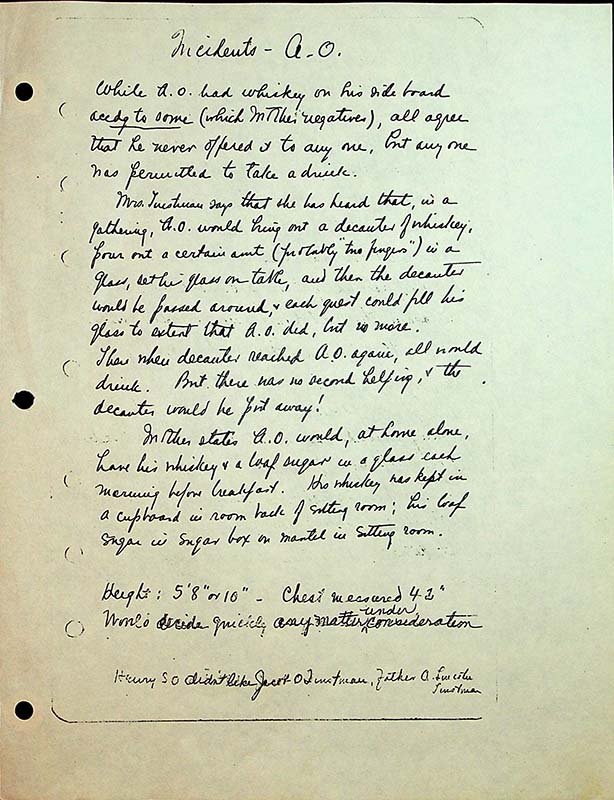 Incidents - A.O.
While A.O. had whiskey on his side board
accdg to some (which Mother negatives), all agree
that he never offered it to any one, but any one
was permitted to take a drink.
Mrs. Tinstman says that she has heard that, in a
gathering, A.O. would bring out a decanter of whiskey,
pour out a certain amt (probably "two fingers") in a
glass, set the glass on table, and then the decanter
would be passed around, & each guest could fill his
glass to extent that A.O. did, but no more.
Then when decanter reached A.O. again, all would
drink. But there was no second helping, & the
decanter would be put away!
Mother states A.O. would, at home alone,
have his whiskey & a loaf sugar in a glass each
morning before breakfast. His whiskey was kept in
a cupboard in room back of sitting room; his loaf
sugar in sugar box on mantel in sitting room.
Height: 5'8" or 10" - Chest measured 42"
Would decide quickly any matter under consideration
Henry S O didn't like Jacob O Tinstman, Father A. Lincoln
Tinstman